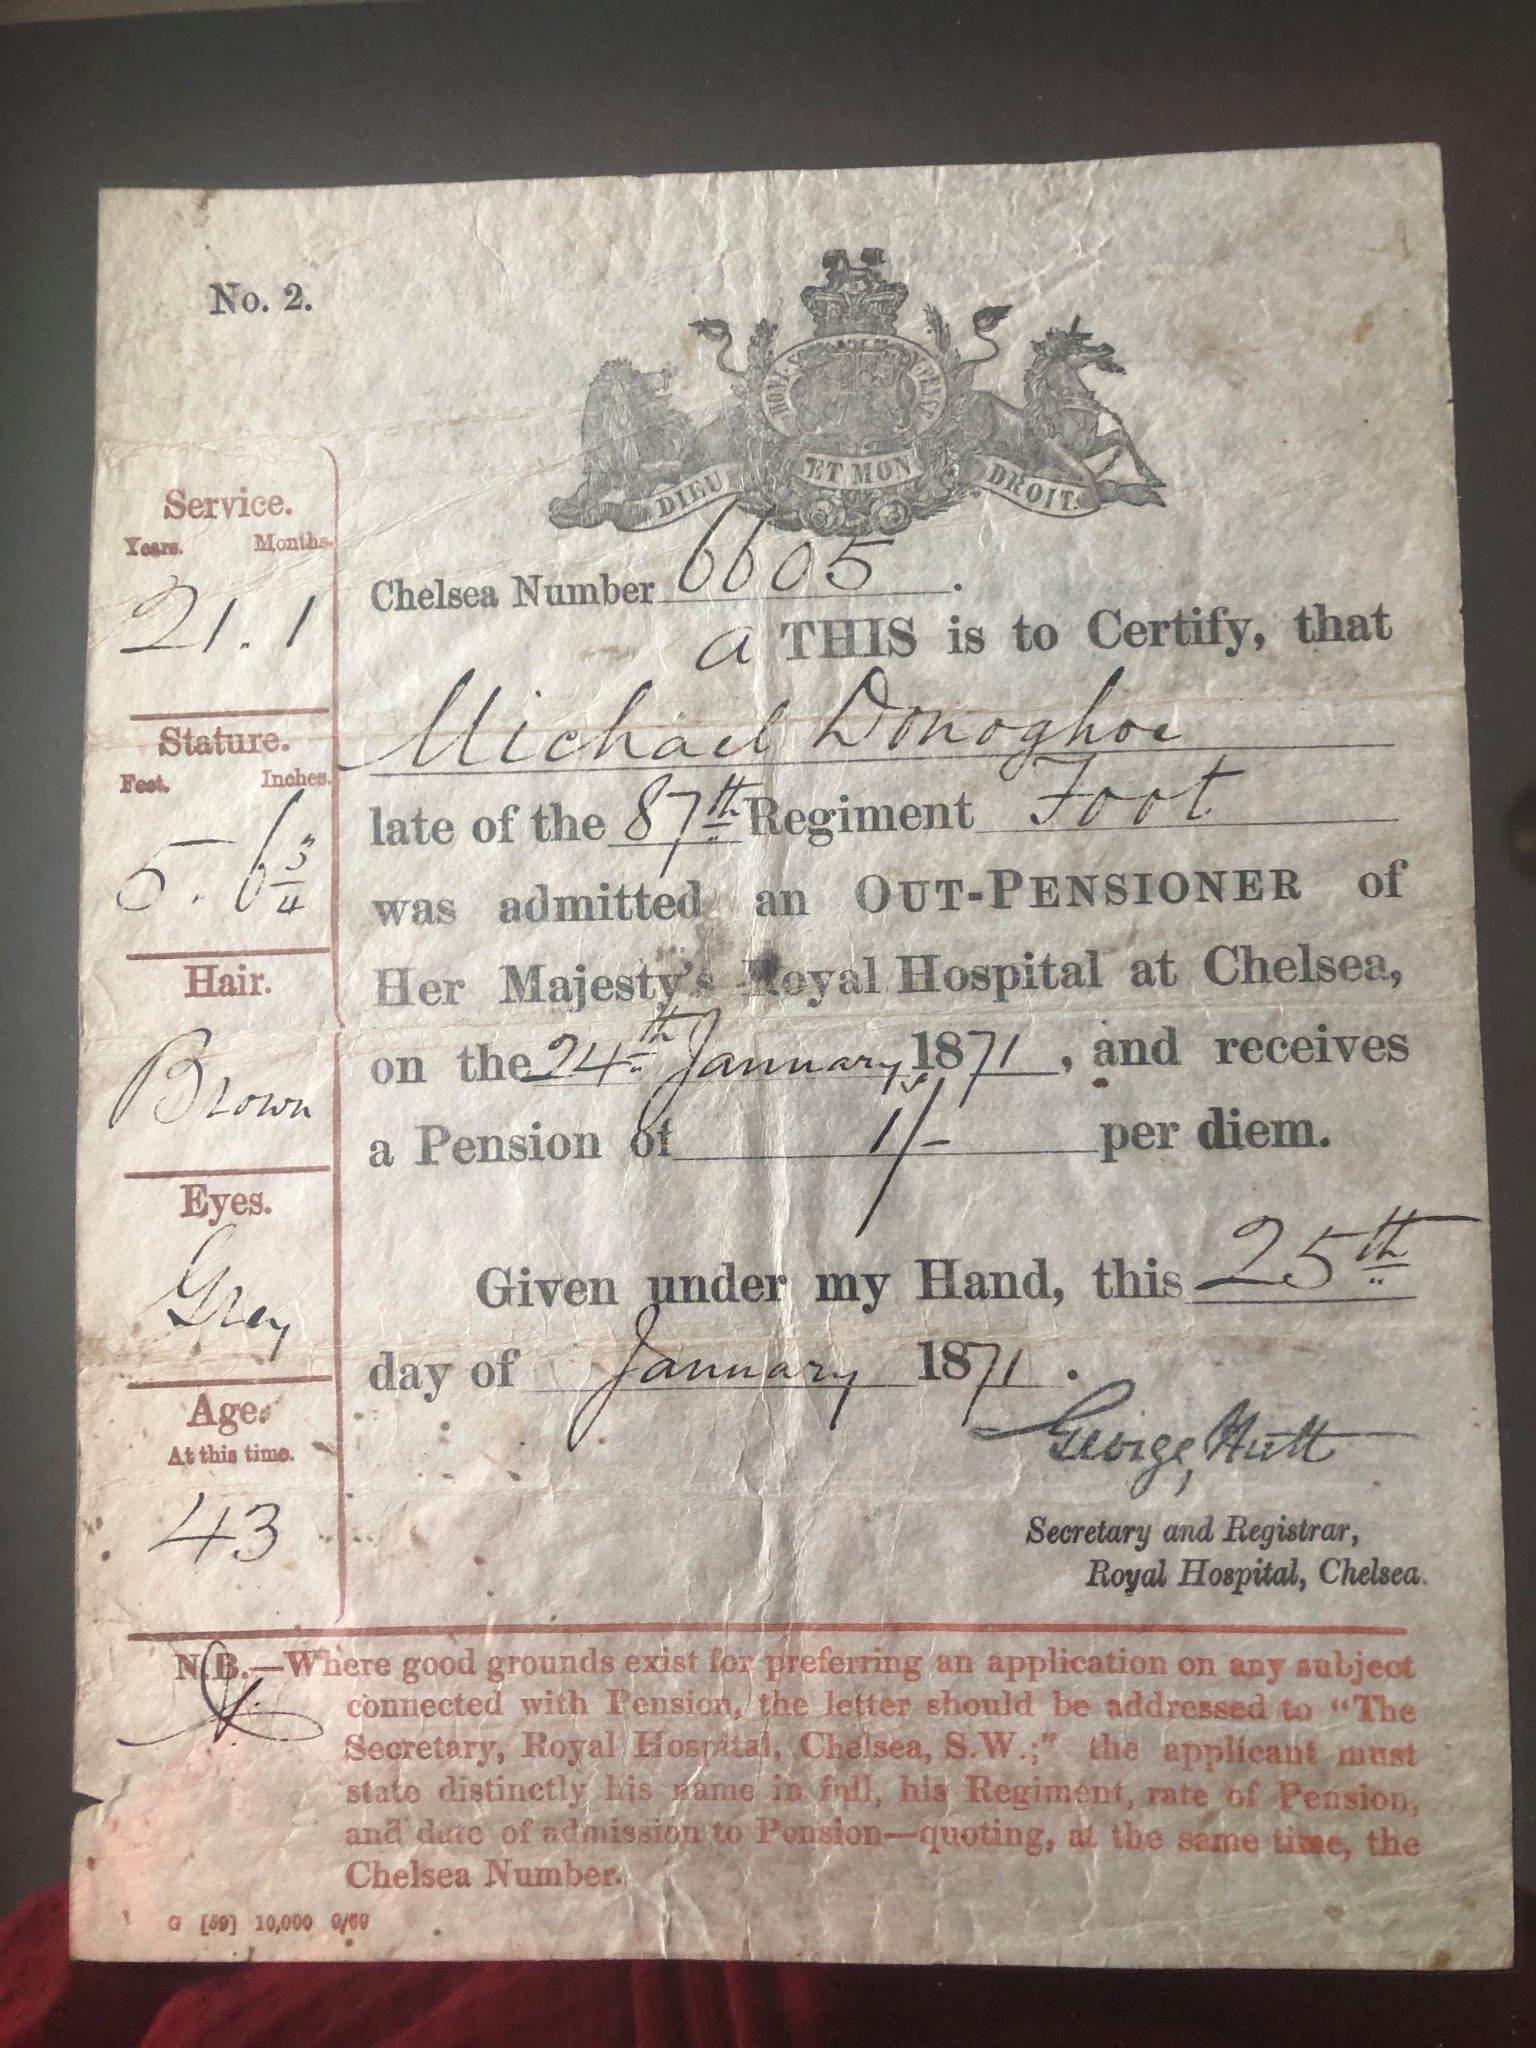 No. 2.
HONI S Y PENSE
DIEU ET MON DROIT.
Service.
Years. Months.
21. 1
Stature.
Feet. Inches.
5. 6 3/4
Hair.
Brown
Eyes.
Grey
Age.
At this time.
43
Chelsea Number 6605.
a THIS is to Certify, that
Michael Donoghoe
late of the 87th Regiment Foot
was admitted an OUT-PENSIONER of
Her Majesty's Royal Hospital at Chelsea,
on the 24th January 1871, and receives
a Pension of 1s/- per diem.
Given under my Hand, this 25th
day of January 1871.
George Hutt
Secretary and Registrar,
Royal Hospital, Chelsea.
N.B.—Where good grounds exist for preferring an application on any subject
connected with Pension, the letter should be addressed to "The
Secretary, Royal Hospital, Chelsea, S.W.;" the applicant must
state distinctly his name in full, his Regiment, rate of Pension,
and date of admission to Pension—quoting, at the same time, the
Chelsea Number.
G [59] 10,000